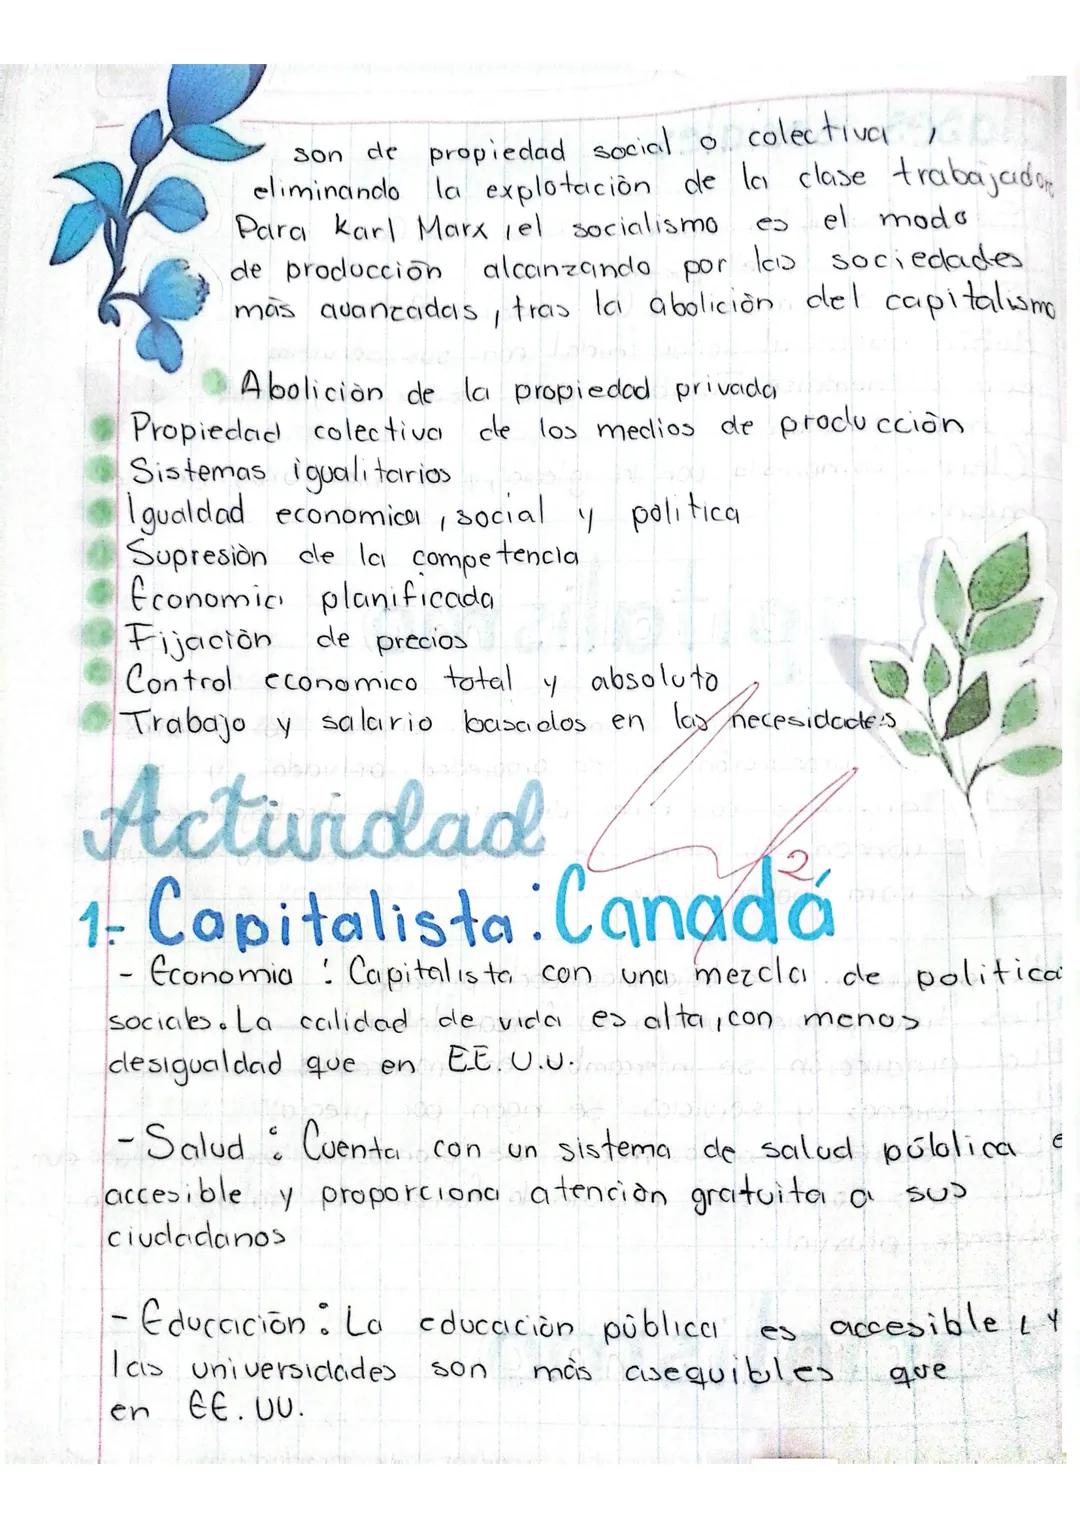 son de propiedad social o colectiva,
eliminando la explotación de la clase trabajador
Para Karl Marx, el socialismo es el modo
de producción alcanzando por las sociedades
más avanzadas, tras la abolición del capitalismo
Abolición de la propiedad privada
Propiedad colectiva de los medios de producción
Sistemas igualitarios
Igualdad economica, social y politica
Supresión de la competencia
Economia planificada
Fijación de precios
Control economico total y absoluto
Trabajo y salario basados en las necesidades
Actividad
2
1- Capitalista: Canadá
- Economia : Capitalista con una mezcla de politica
sociales. La calidad de vida es alta, con menos
desigualdad que en EE.U.U.
- Salud : Cuenta con un sistema de salud pública e
accesible y proporciona atención gratuita a sus
ciudadanos
- Educación : La educación pública es accesible, y
las universidades son más asequibles que
en EE.UU.